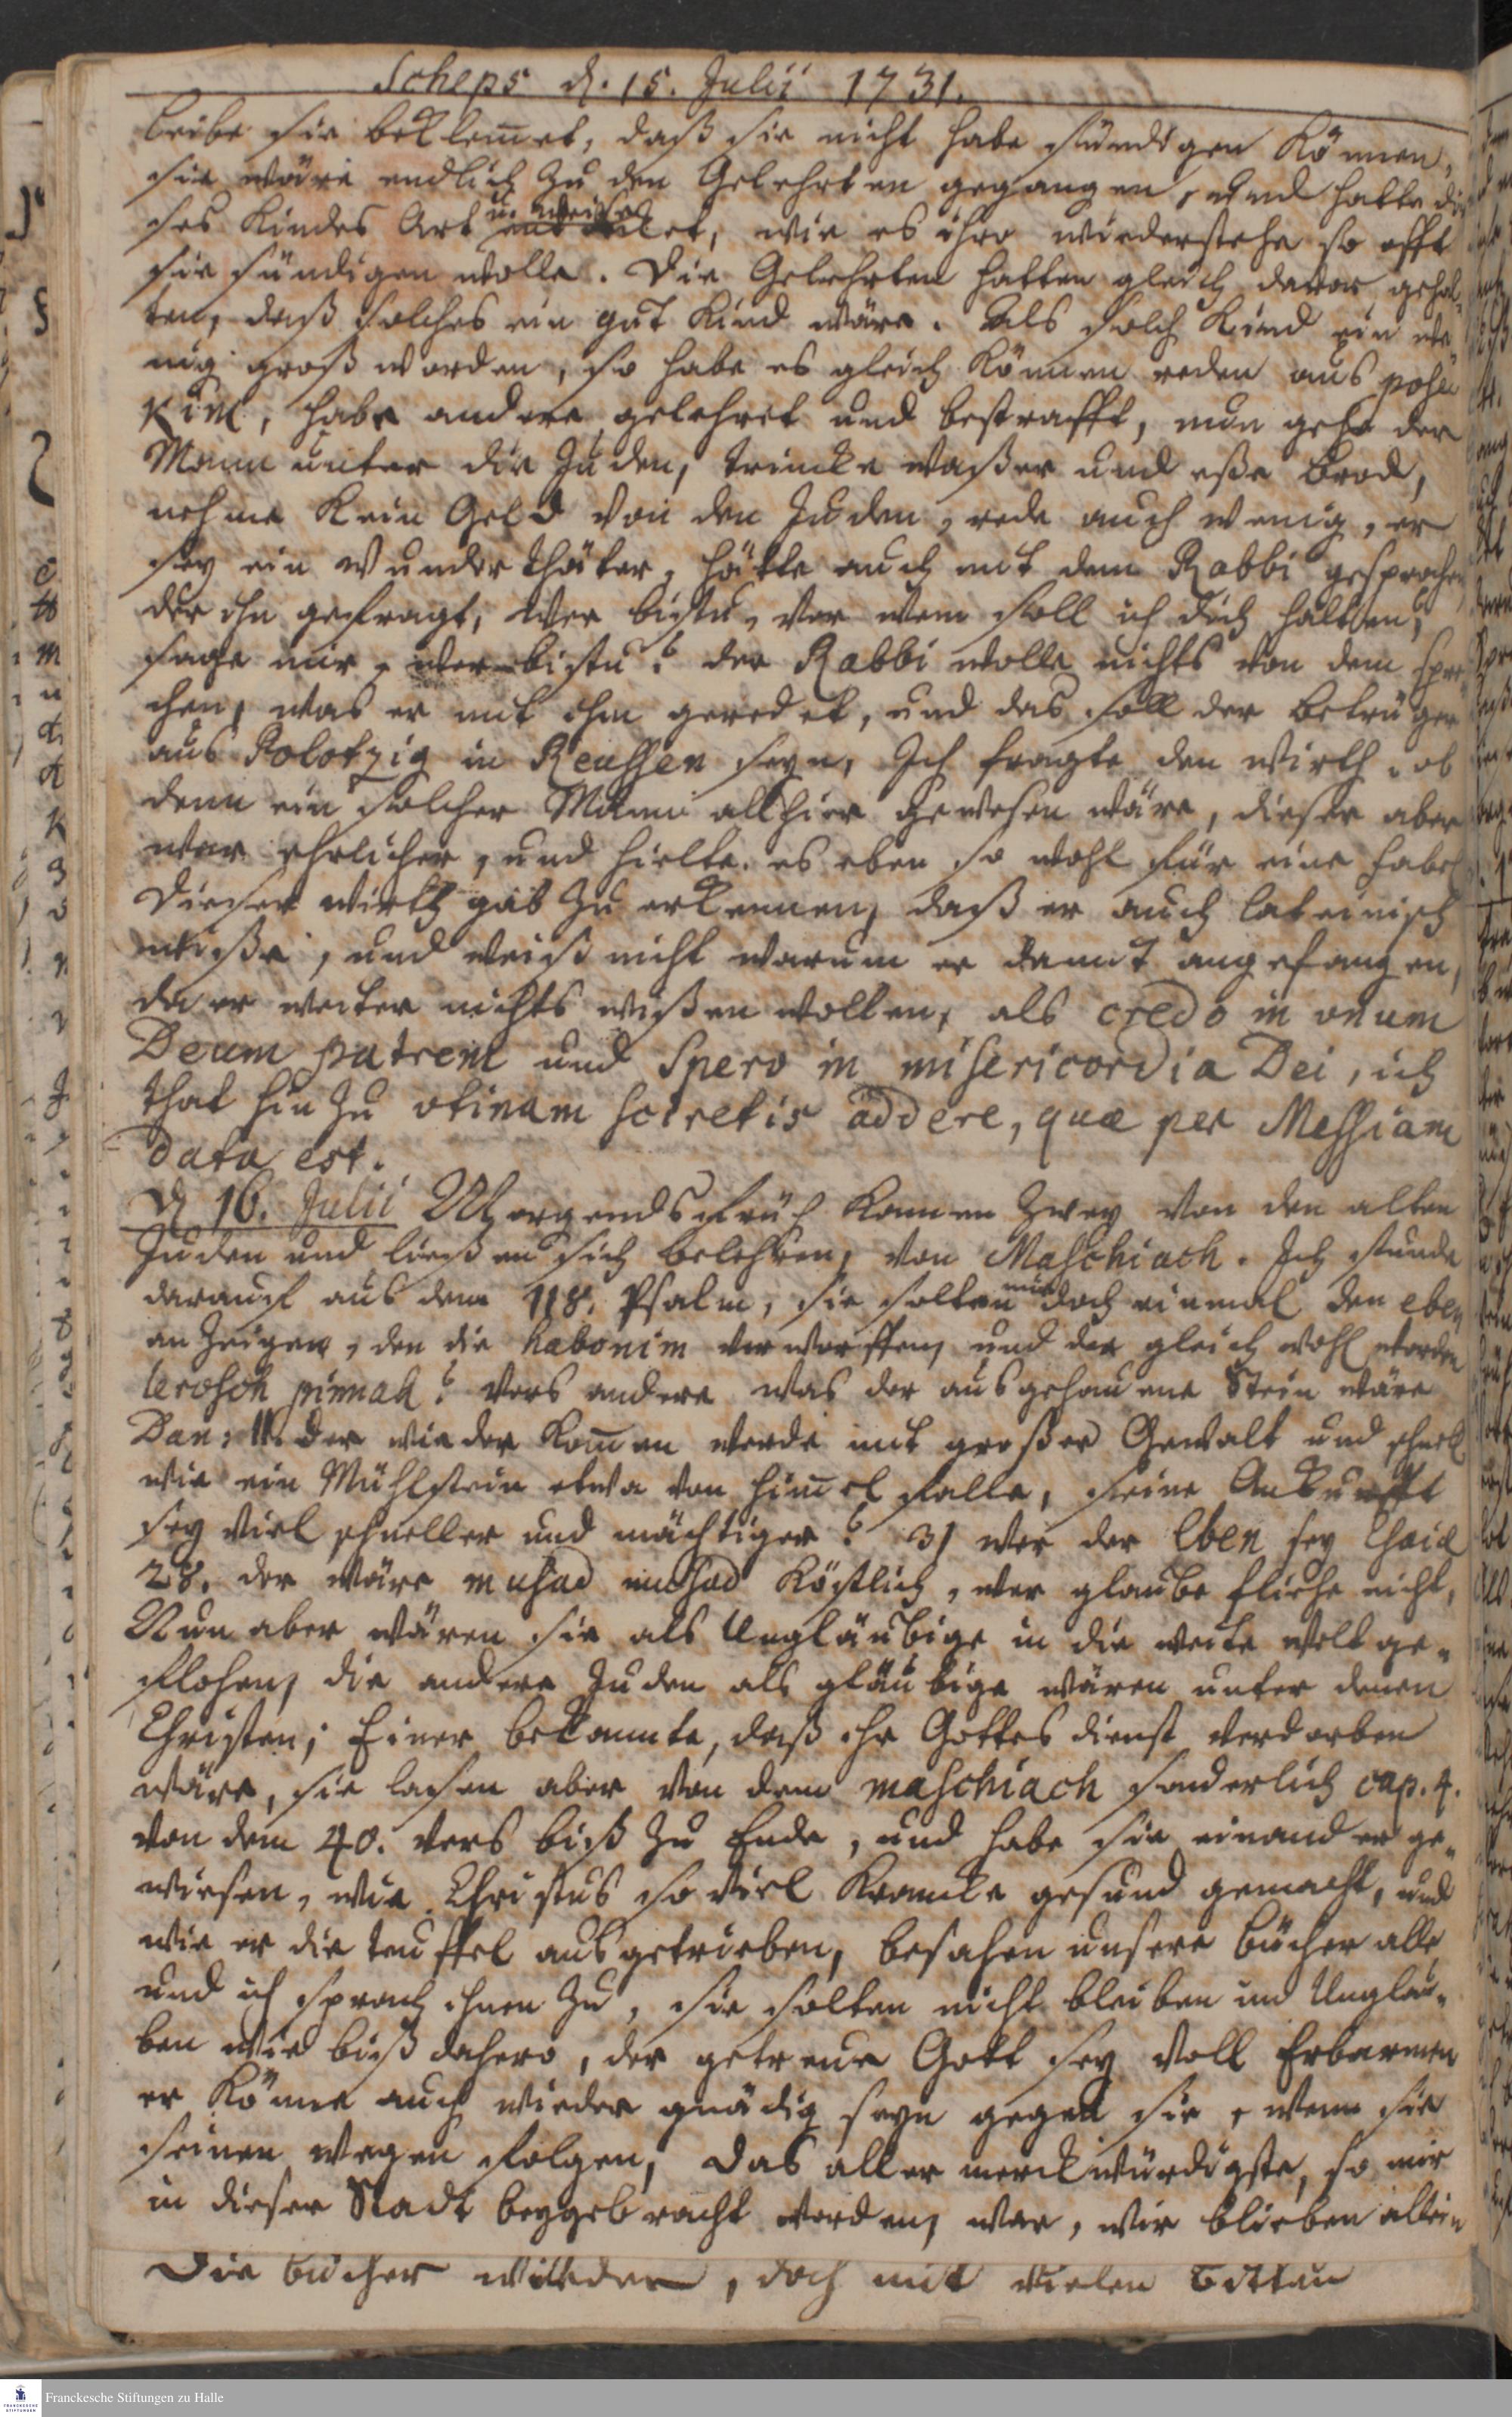 Scheps d. 15. Julii 1731.
Leibe sie beklem̄et, daß sie nicht habe sündigen können,
sie wäre endlich zu den Gelehrten gegangen, und hatte die
ses Kindes Art u. weise, wie es ihro wiederstehe so offt
sie sündigen wolle. Die Gelehrten hatten gleich davor gehal-
ten, daß solches ein gut Kind wäre. Als solch Kind ein we-
nig groß worden, so habe es gleich können reden aus posu
kim, habe andere gelehret und bestrafft, nun gehe der
Mann unter die Juden, trincke waßer und eße brod,
nehme kein Geld von den Juden, rede auch wenig, er
sey ein wunderthäter, hätte auch mit dem Rabbi gesprochen
der ihn gefragt, wer bistu, vor wem soll ich dich halten,
sage mir, wer bistu? der Rabbi wolle nichts von dem spre-
chen, was er mit ihm geredet, und das soll der betrüger
aus Polotzig in Reussen seyn, Ich fragte den wirth, ob
denn ein solcher Mann allhier gewesen wäre, dieser aber
war ehrlicher, und hielte es eben so wohl für eine fabel
Dieser wirth gab zu erkennen, daß er auch lateinisch
wiße, und weiß nicht warum er damit angefangen,
da er weiter nichts wißen wollen, als credo in unum
Deum patrem und Spero in misericordia Dei, ich
that hinzu utinam sciretis addere, quæ per Messiam
data est.
d 16. Julii Morgends früh kamen zwey von den alten
Juden und ließen sich belehren, von Maschiach. Ich stunde
darauf aus dem 118. Psalm, sie solten mir doch einmal den eben
anzeigen, den die habonim verworffen, und der gleich wohl worden
lerosch pinnah? vors andere was der ausgehauene Stein wäre
Dan: 11. der wieder kom̄en werde mit großer Gewalt und schnell
wie ein Mühlstein etwa von him̄el falle, seine Ankunfft
sey viel schneller und mächtiger? 3) wer der Eben sey Esaiæ
28. der wäre musad musad köstlich, wer glaube fliehe nicht,
Nun aber wären sie als Ungläubige in die weite welt ge-
flohen, die andere Juden als gläubige wären unter denen
Christen; Einer bekannte, daß ihr Gottesdienst verdorben
wäre, sie lasen aber von dem maschiach sonderlich cap. 4.
von dem 40. vers biß zu Ende, und habe sie einander ge-
wiesen, wie Christus so viel Krancke gesund gemacht, und
wie er die teuffel ausgetrieben, besahen unsere bücher alle
und ich sprach ihnen zu, sie solten nicht bleiben im Unglau-
ben wie biß dahero, der getreue Gott sey voll Erbarmen
er könne auch wieder gnädig seyn gegen sie, wenn sie
seinen wegen folgen, Das aller merckwürdigste, so mir
in dieser Stadt beygebracht worden, war, wir blieben allein
Die bücher wieder, doch mit vielen bitten
Franckesche Stiftungen zu Halle